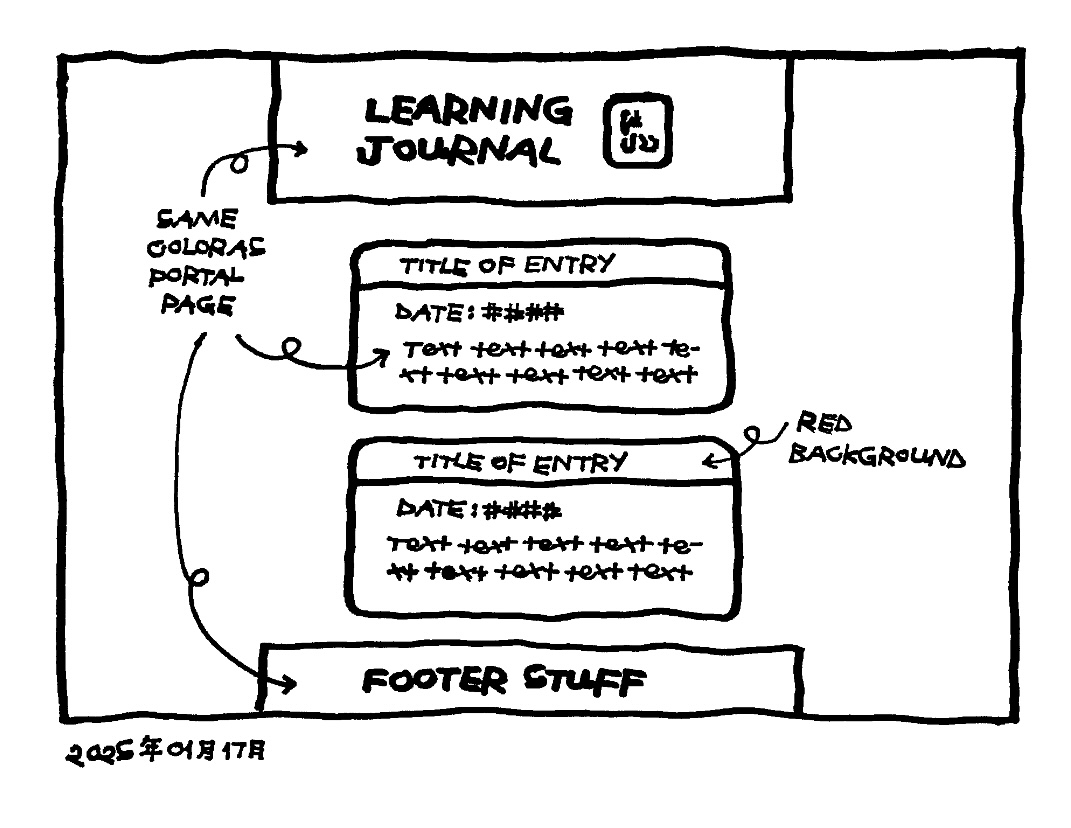 LEARNING
JOURNAL
SAME
COLOR AS
PORTAL
PAGE
TITLE OF ENTRY
DATE: ####
Text text text text te-
xt text text text text
RED
BACKGROUND
TITLE OF ENTRY
DATE: ####
Text text text text te-
xt text text text text
FOOTER STUFF
2025年01月17日